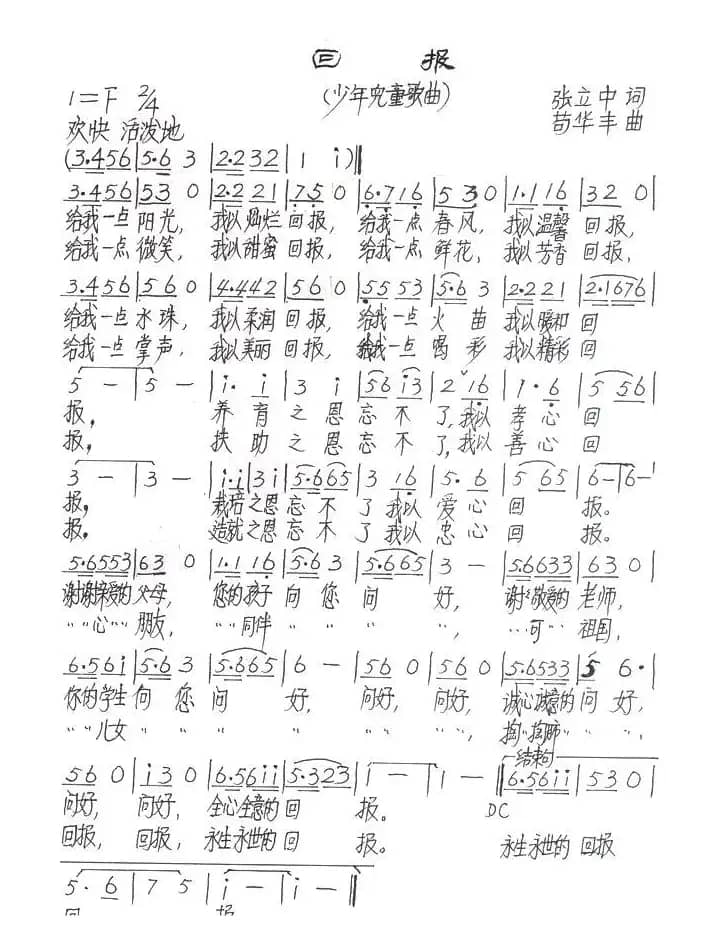 回 报
(少年儿童歌曲)
1=F 2/4
张立中 词
欢快 活泼地
苟华丰 曲
(3.456|5.6 3|2.232|1 i)‖
3.456|53 0|2.221|75 0|6.716|5 30|1.116|32 0|
给我一点 阳光, 我以灿烂 回报, 给我一点 春风, 我以温馨 回报,
给我一点 微笑, 我以甜蜜 回报, 给我一点 鲜花, 我以芳香 回报,
3.456|56 0|4.442|56 0|55 53|5.6 3|2.221|2.1676|
给我一点 水珠, 我以柔润 回报, 给我一点 火 苗 我以暖和 回
给我一点 掌声, 我以美丽 回报, 给我一点 喝 彩 我以精彩 回
5 —|5 —|i. i|3 i|56 i3|2 16|1. 6|5 56|
报, 养 育 之 恩 忘 不 了,我以 孝 心 回
报, 扶 助 之 恩 忘 不 了,我以 善 心 回
3 —|3 —|i.i|3i|5.665|3 16|5. 6|5 65|6—|6—|
报, 栽培之恩 忘 不 了 我以 爱 心 回 报。
报, 造就之恩 忘 不 了 我以 忠 心 回 报。
5.6553|63 0|1.1 16|5.6 3|5.665|3 —|5.6633|63 0|
谢谢亲爱的 父母, 您的孩子 向 您 问 好, 谢谢敬爱的 老师,
" " 心 " " 朋友, " " 同伴 " " " ", " " 可 " 祖国,
6.56i|5.6 3|5.665|6 —|56 0|56 0|5.6533|5 6.|
你的学生 向 您 问 好, 问好, 问好, 诚心诚意的 问 好,
" " 儿女 " " " " " " " ", 掏 " 掏肺 " " "
结束句
56 0|i3 0|6.56ii|5.323|i —|i —‖6.56ii|530|
问好, 问好, 全心全意的 回 报。 DC
回报, 回报, 永生永世的 回 报。 永生永世的 回报
5. 6|7 5|i —|i —‖
回 报